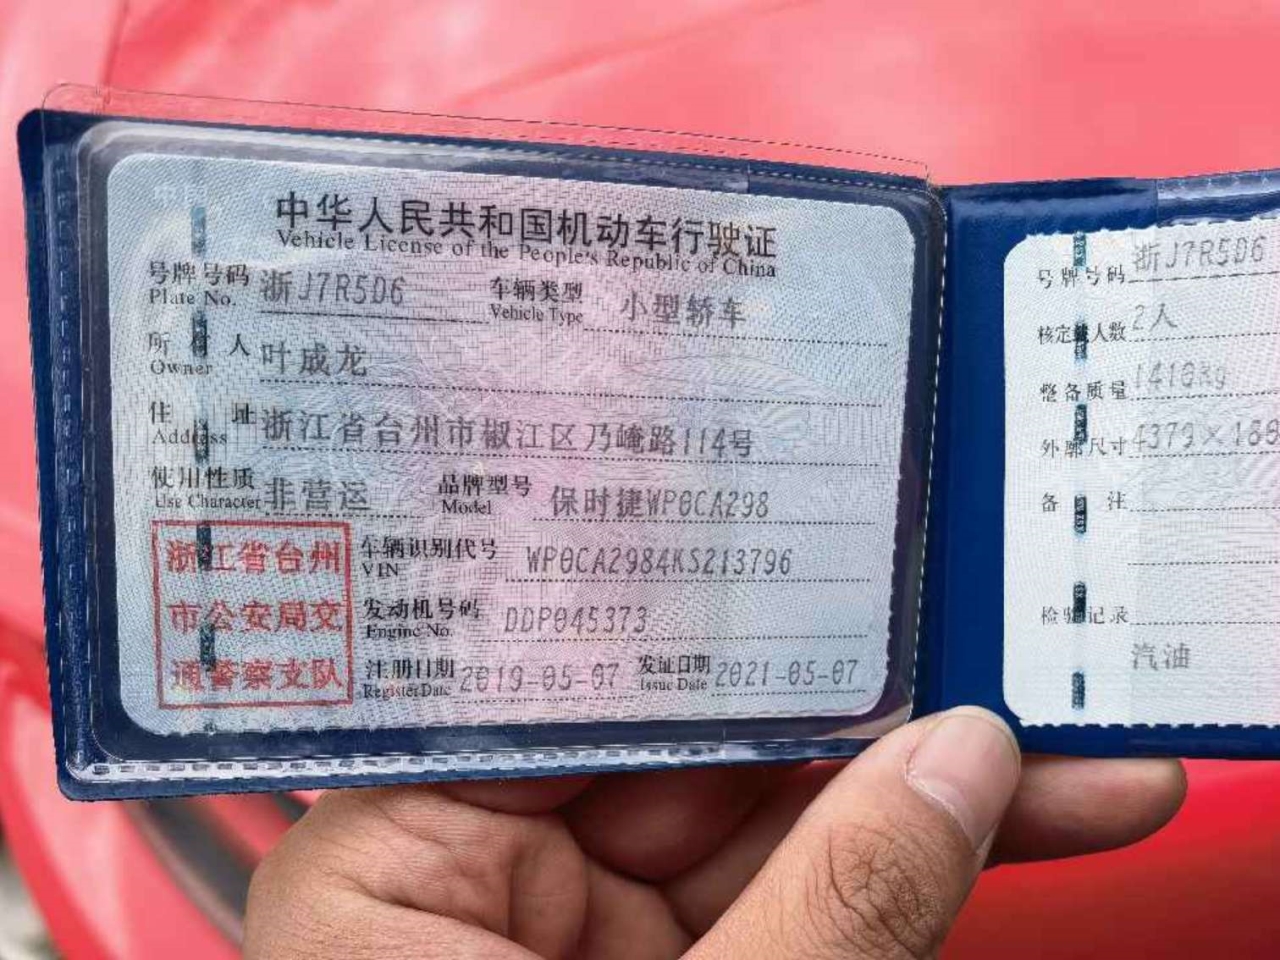 中华人民共和国机动车行驶证
Vehicle License of the People's Republic of China
号牌号码 浙J7R5D6 车辆类型 小型轿车
Plate No. Vehicle Type
所 人 叶成龙
Owner
住 址 浙江省台州市椒江区乃崦路114号
Address
使用性质 非营运 品牌型号 保时捷WP0CA298
Use Character Model
浙江省台州
市公安局交
通警察支队
车辆识别代号 WP0CA2984KS213796
VIN
发动机号码 DDP045373
Engine No.
注册日期 2019-05-07 发证日期 2021-05-07
Register Date Issue Date
号牌号码 浙J7R5D6
核定载人数 2人
整备质量 1418kg
外廓尺寸 4379×188
备 注
检验记录
汽油